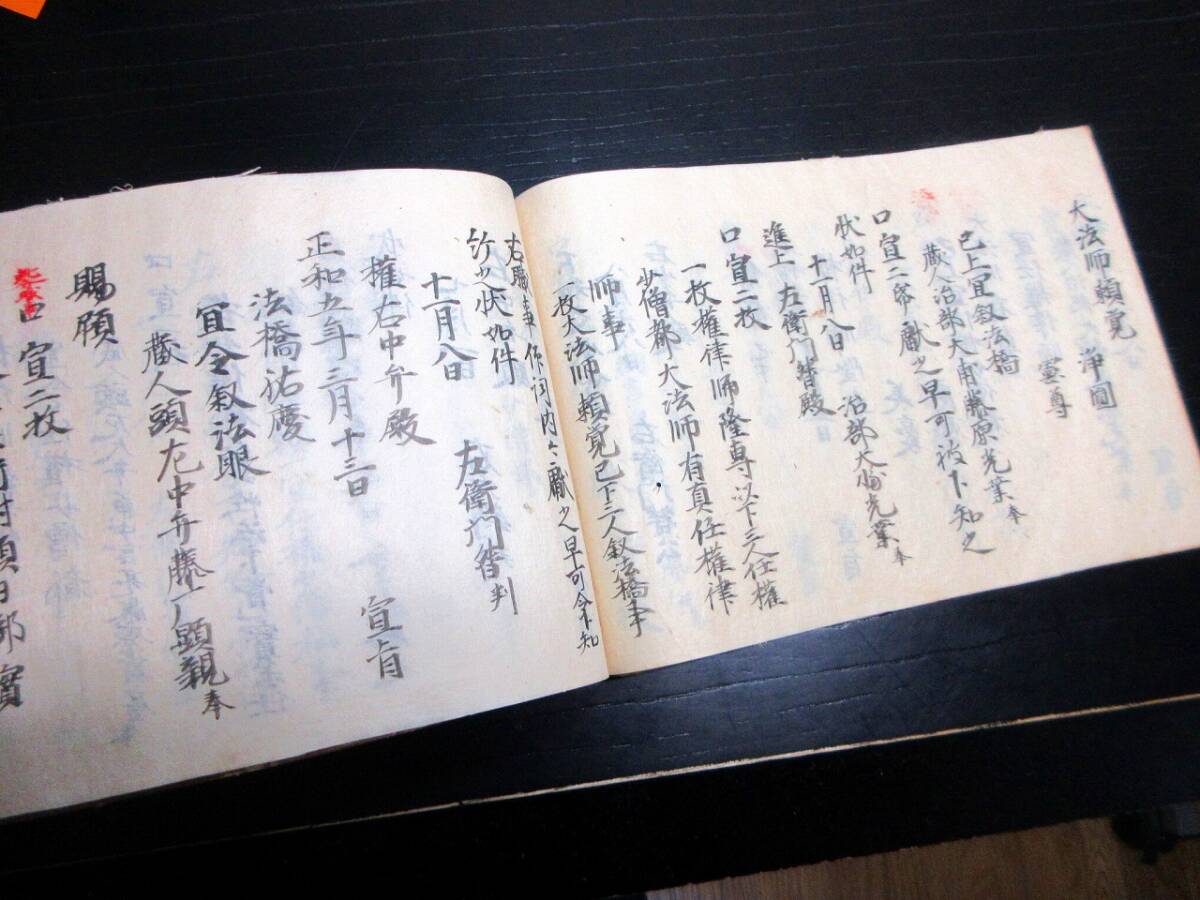 大法師頼覚　浄圓
憲尊
已上宜叙法橋
蔵人治部大甫藤原光業奉
口宣二帋献之早可被下知之
状如件
十一月八日　治部大輔光業奉
進上　左衛門督殿
口宣二枚
一枚権律師隆尊以下三人任権
少僧都大法師有真任権律
師事
一枚大法師頼覚已下三人叙法橋事
右職事仰詞内々献之早可令下知
給之状如件
十一月八日　左衛門督判
権右中弁殿
正和五年三月十三日　宣旨
法橋祐慶
宜令叙法眼
蔵人頭左中弁藤原顕親奉
賜願
口宣二枚